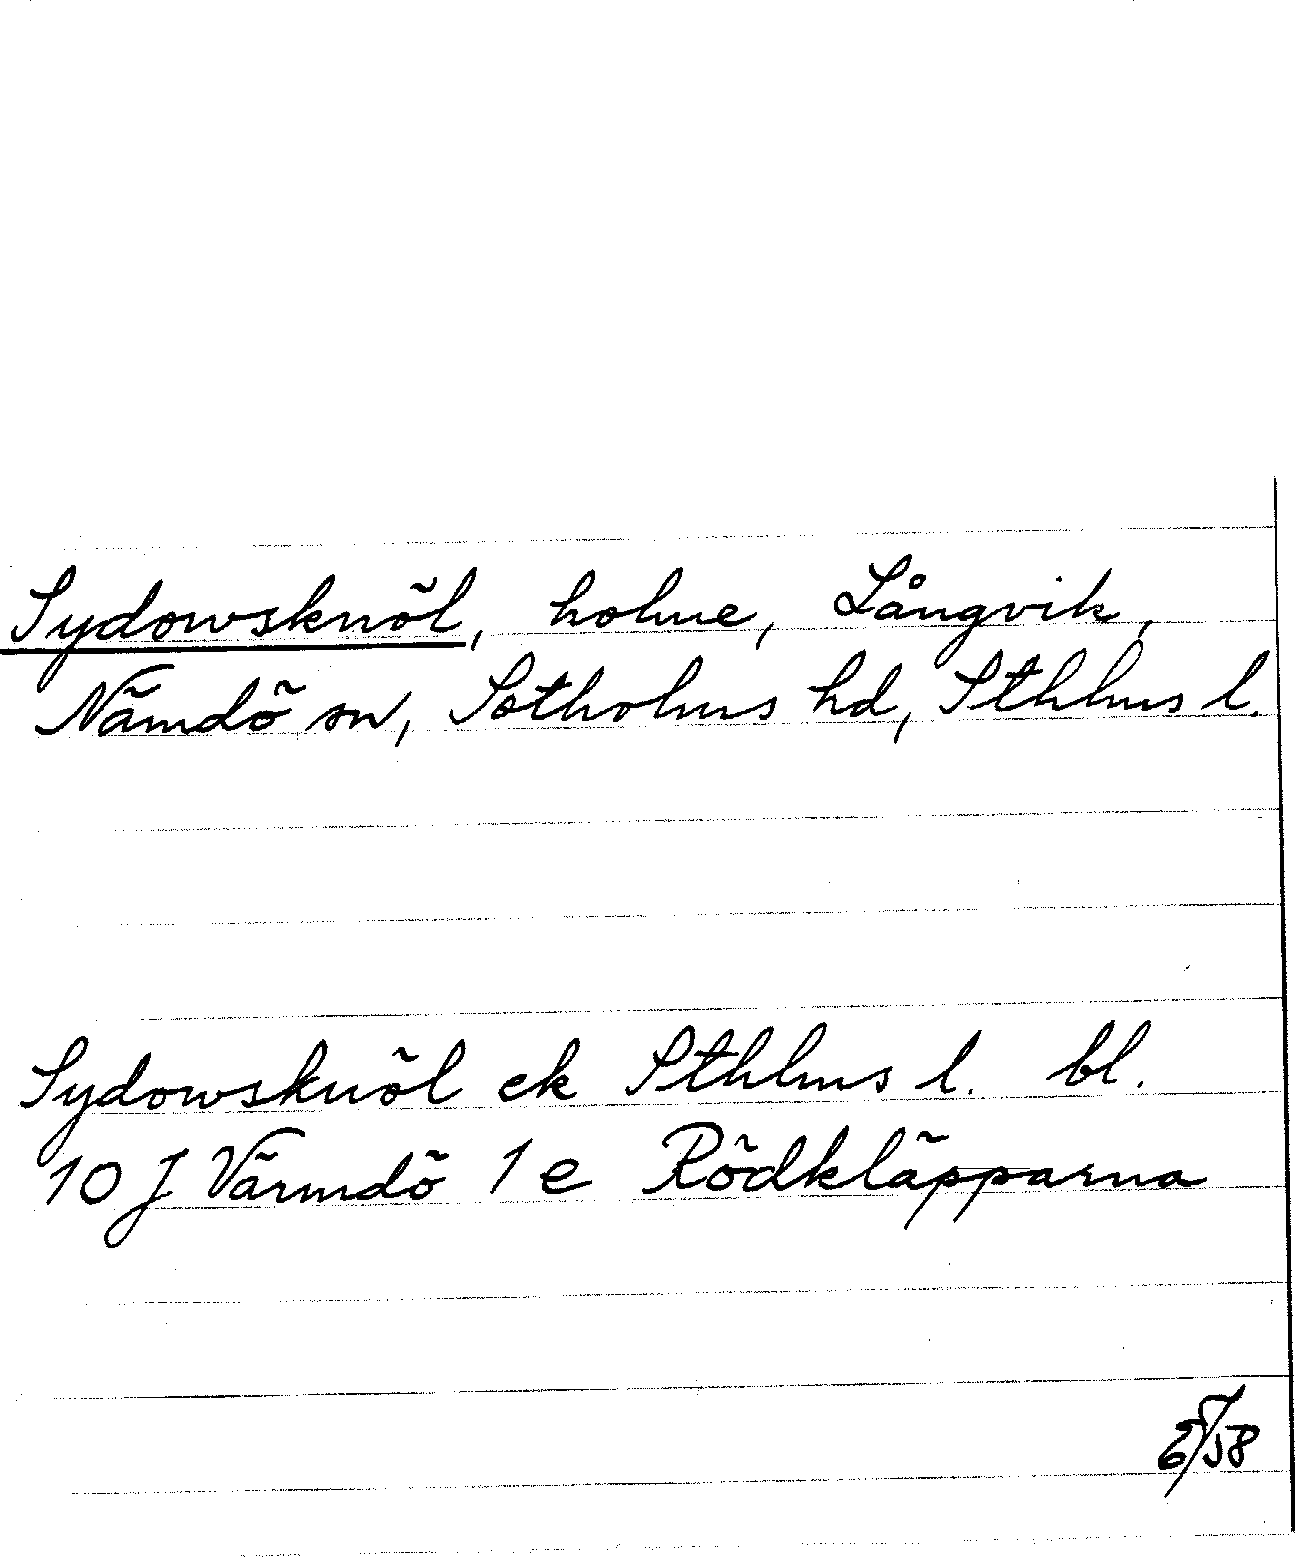 Sydowsknöl, holme, Långvik,
Nämdö sn, Sotholms hd, Sthlms l.
Sydowsknöl ek Sthlms l. bl.
10 J Värmdö 1 e Rödkläpparna